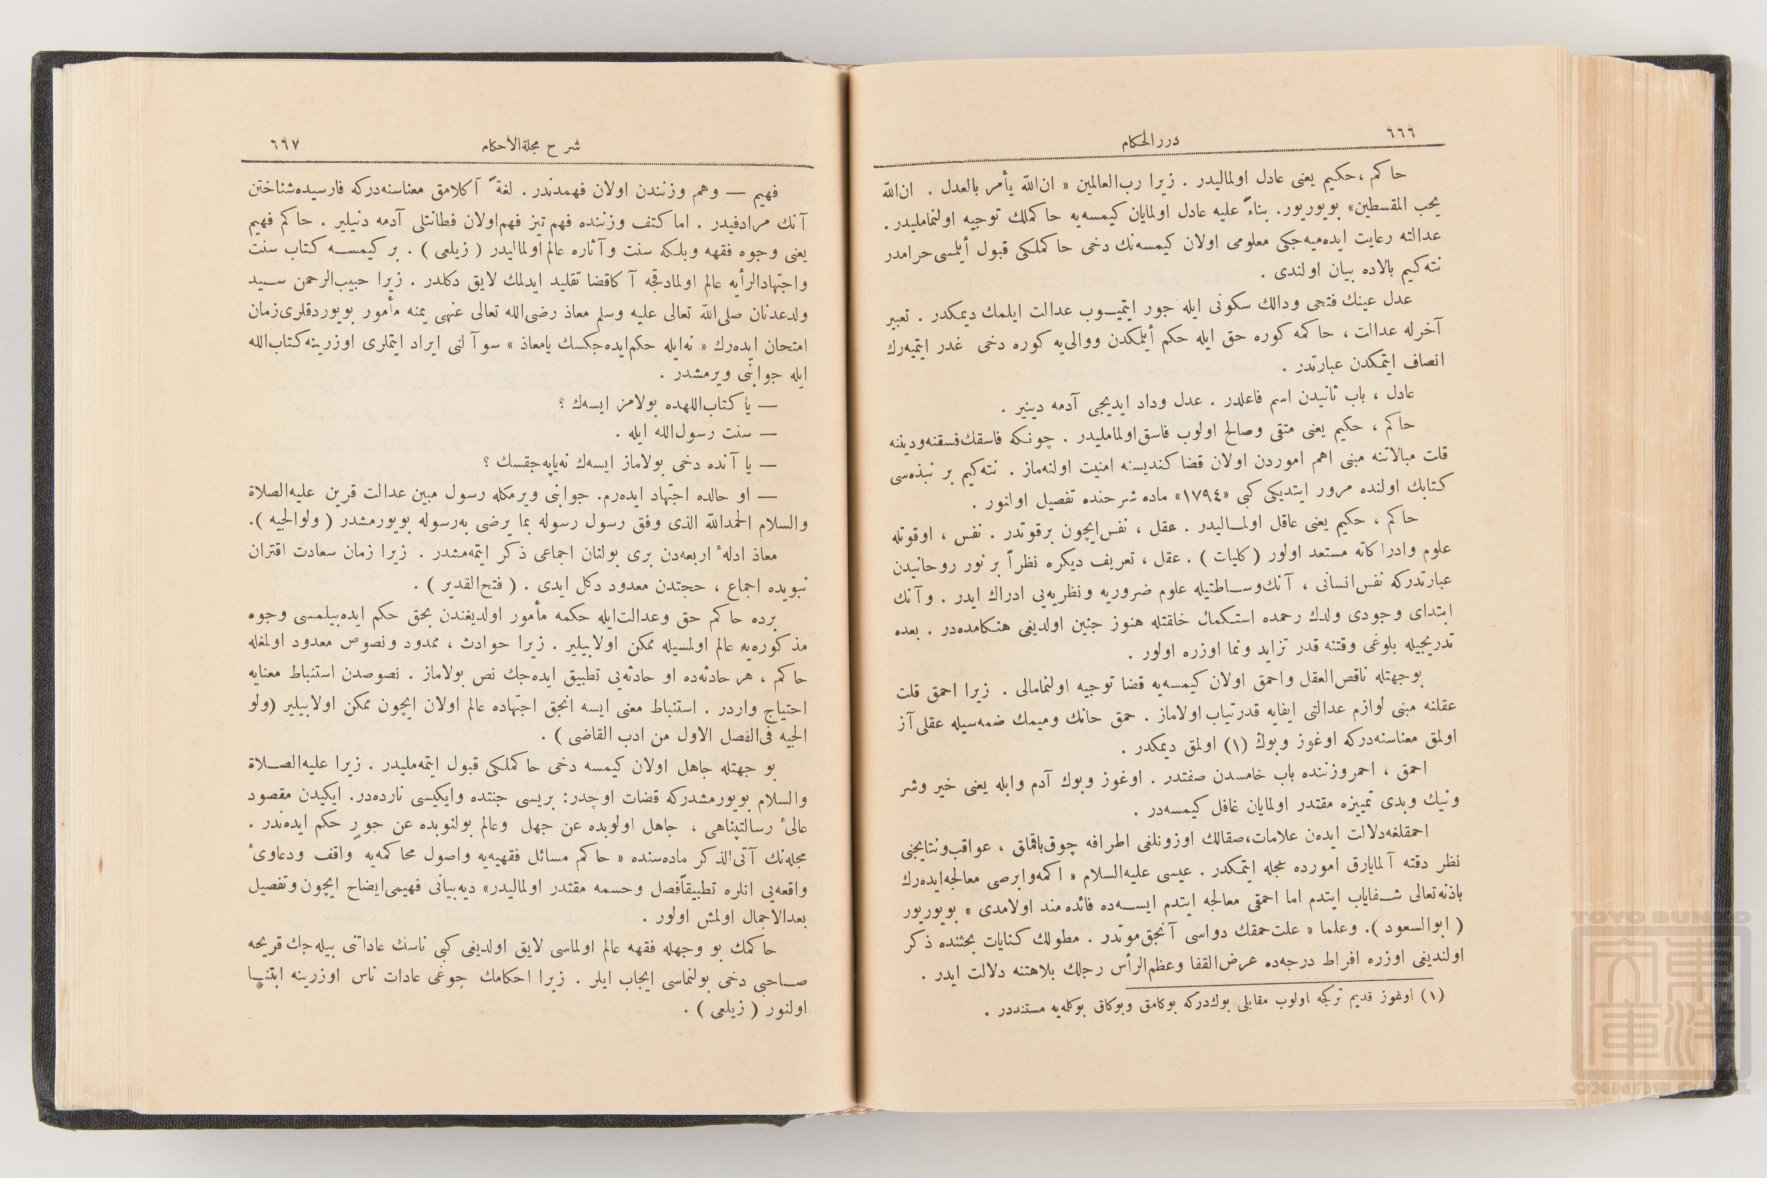 ٦٦٦
دررالحكام
حاكم ،حكيم يعنى عادل اولماليدر . زيرا رب‌العالمين « ان‌الله يأمر بالعدل . ان‌الله
يحب المقسطين» بويوريور. بناءً عليه عادل اولمايان كيمسه‌يه حاكملك توجيه اولنماملیدر .
عدالته رعايت ايده‌ميه‌جكى معلومى اولان كيمسه‌نك دخى حاكملكى قبول أيلمسى‌حرامدر
نته‌كيم بالاده بيان اولندى .
عدل عينك فتحى ودالك سكونى ايله جور ايتميوب عدالت ايلمك ديمكدر . تعبير
آخرله عدالت ، حاكمه كوره حق ايله حكم أيلمكدن ووالى‌يه كوره دخى غدر ايتميه‌رك
انصاف ايتمكدن عبارتدر .
عادل ، باب ثانيدن اسم فاعلدر . عدل وداد ايديجى آدمه دينير .
حاكم ، حكيم يعنى متقى وصالح اولوب فاسق‌اولماملیدر . چونكه فاسقك‌فسقنه‌ودينه
قلت مبالاتنه مبنى اهم اموردن اولان قضا كنديسنه امنيت اولنه‌ماز . نته‌كيم بر نبذه‌سى
كتابك اولنده مرور ايتديكى كبى «١٧٩٤» ماده شرحنده تفصيل اولنور .
حاكم ، حكيم يعنى عاقل اولماليدر . عقل ، نفس‌ايچون برقوتدر . نفس ، اوقوتله
علوم وادراكاته مستعد اولور ( كليات ) . عقل ، تعريف ديكره نظراً بر نور روحانيدن
عبارتدركه نفس‌انسانى ، آنك‌وساطتيله علوم ضروريه ونظريه‌يى ادراك ايدر . وآنك
ابتداى وجودى ولدك رحمده استكمال خلقتله هنوز جنين اولديغى هنكامده‌در . بعده
تدريجيله بلوغى وقتنه قدر تزايد ونما اوزره اولور .
بوجهتله ناقص‌العقل واحمق اولان كيمسه‌يه قضا توجيه اولنمامالى . زيرا احمق قلت
عقلنه مبنى لوازم عدالتى ايفايه قدرتياب اولاماز . حمق حانك وميمك ضمه‌سيله عقلى آز
اولمق معناسنه‌دركه اوغوز وبوك (١) اولمق ديمكدر .
احمق ، احمروزننده باب خامسدن صفتدر . اوغوز وبوك آدم وابله يعنى خير وشر
ونيك وبدى تمييزه مقتدر اولمايان غافل كيمسه‌در .
احمقلغه‌دلالت ايدەن علامات،صقالك اوزونلغى اطرافه چوق‌باقماق ، عواقب‌ونتايجنى
نظر دقته آلمايارق امورده عجله ايتمكدر . عيسى عليه‌السلام « اكمه‌وابرصى معالجه‌ايده‌رك
باذنه‌تعالى شفاياب ايتدم اما احمقى معالجه ايتدم ايسه‌ده فائده‌مند اولامدى » بويوريور
( ابوالسعود ). وعلما « علت‌حمقك دواسى آنجق‌موتدر . مطولك كنايات بحثنده ذكر
اولنديغى اوزره افراط درجه‌ده عرض‌القفا وعظم‌الرأس رجلك بلاهتنه دلالت ايدر .
(١) اوغوز قديم تركجه اولوب مقابلى بوك‌دركه بوكامق وبوكاق بوكله‌يه مستنددر .
شرح مجلةالأحكام
٦٦٧
فهيم — وهم وزنندن اولان فهمدندر . لغةً آكلامق معناسنه‌دركه فارسيده‌شناختن
آنك مرادفيدر . اما كتف وزننده فهم تيز فهم‌اولان فطانتلى آدمه دنيلير . حاكم فهيم
يعنى وجوه فقهه وبلكه سنت وآثاره عالم‌اولماليدر ( زيلعى ) . بر كيمسه كتاب سنت
واجتهادالرأيه عالم اولمادقجه آكاقضا تقليد ايدلمك لايق دكلدر . زيرا حبيب‌الرحمن سيد
ولدعدنان صلى‌الله تعالى عليه وسلم معاذ رضى‌الله تعالى عنهى يمنه مأمور بويوردقلرى‌زمان
امتحان ايده‌رك « نه‌ايله حكم‌ايده‌جكسك يامعاذ » سوآلنى ايراد ايتملرى اوزرينه‌كتاب‌الله
ايله جوابنى ويرمشدر .
— يا كتاب‌اللهده بولامز ايسه‌ك ؟
— سنت رسول‌الله ايله .
— يا آنده دخى بولاماز ايسه‌ك نه‌ياپه‌جقسك ؟
— او حالده اجتهاد ايده‌رم. جوابنى ويرمكله رسول مبين عدالت قرين عليه‌الصلاة
والسلام الحمدالله الذى وفق رسول رسوله بما يرضى به‌رسوله بويورمشدر ( ولوالجيه ).
معاذ ادلهٔ اربعه‌دن برى بولنان اجماعى ذكر ايتمه‌مشدر . زيرا زمان سعادت اقتران
نبويده اجماع ، حجتدن معدود دكل ايدى . ( فتح‌القدير ) .
برده حاكم حق وعدالت‌ايله حكمه مأمور اولديغندن بحق حكم ايده‌بيلمسى وجوه
مذكوره‌يه عالم اولمسيله ممكن اولابيلير . زيرا حوادث ، ممدود ونصوص معدود اولمغله
حاكم ، هر حادثه‌ده او حادثه‌يى تطبيق ايده‌جك نص بولاماز . نصوصدن استنباط معنايه
احتياج واردر . استنباط معنى ايسه انجق اجتهاده عالم اولان ايچون ممكن اولابيلير (ولو
الجيه فى‌الفصل الاول من ادب القاضى ) .
بو جهتله جاهل اولان كيمسه دخى حاكملكى قبول ايتمه‌ملیدر . زيرا عليه‌الصلاة
والسلام بويورمشدركه قضات اوچدر: بريسى جنتده وايكيسى نارده‌در. ايكيدن مقصود
عالئ رسالتپناهى ، جاهل اولوبده عن جهل وعالم بولنوبده عن جورٍ حكم ايده‌ندر .
مجله‌نك آتى‌الذكر ماده‌سنده « حاكم مسائل فقهيه‌يه واصول محاكمه‌يه واقف ودعاوئ
واقعه‌يى انلره تطبيقاًفصل وحسمه مقتدر اولماليدر» ديه‌بيانى فهيمى‌ايضاح ايچون‌وتفصيل
بعدالاجمال اولمش اولور .
حاكمك بو وجهله فقهه عالم اولماسى لايق اولديغى كبى ناسك عاداتنى بيله‌جك قريحه
صاحبى دخى بولنماسى ايجاب ايلر . زيرا احكامك جوغى عادات ناس اوزرينه ابتنا
اولنور ( زيلعى ) .
TOYO BUNKO
東洋文庫
TOYO BUNKO